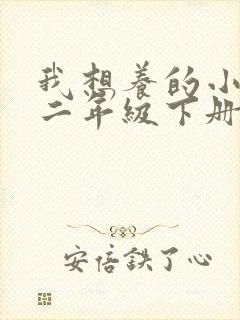 我想养的小
二年级下册
安信鉄了心